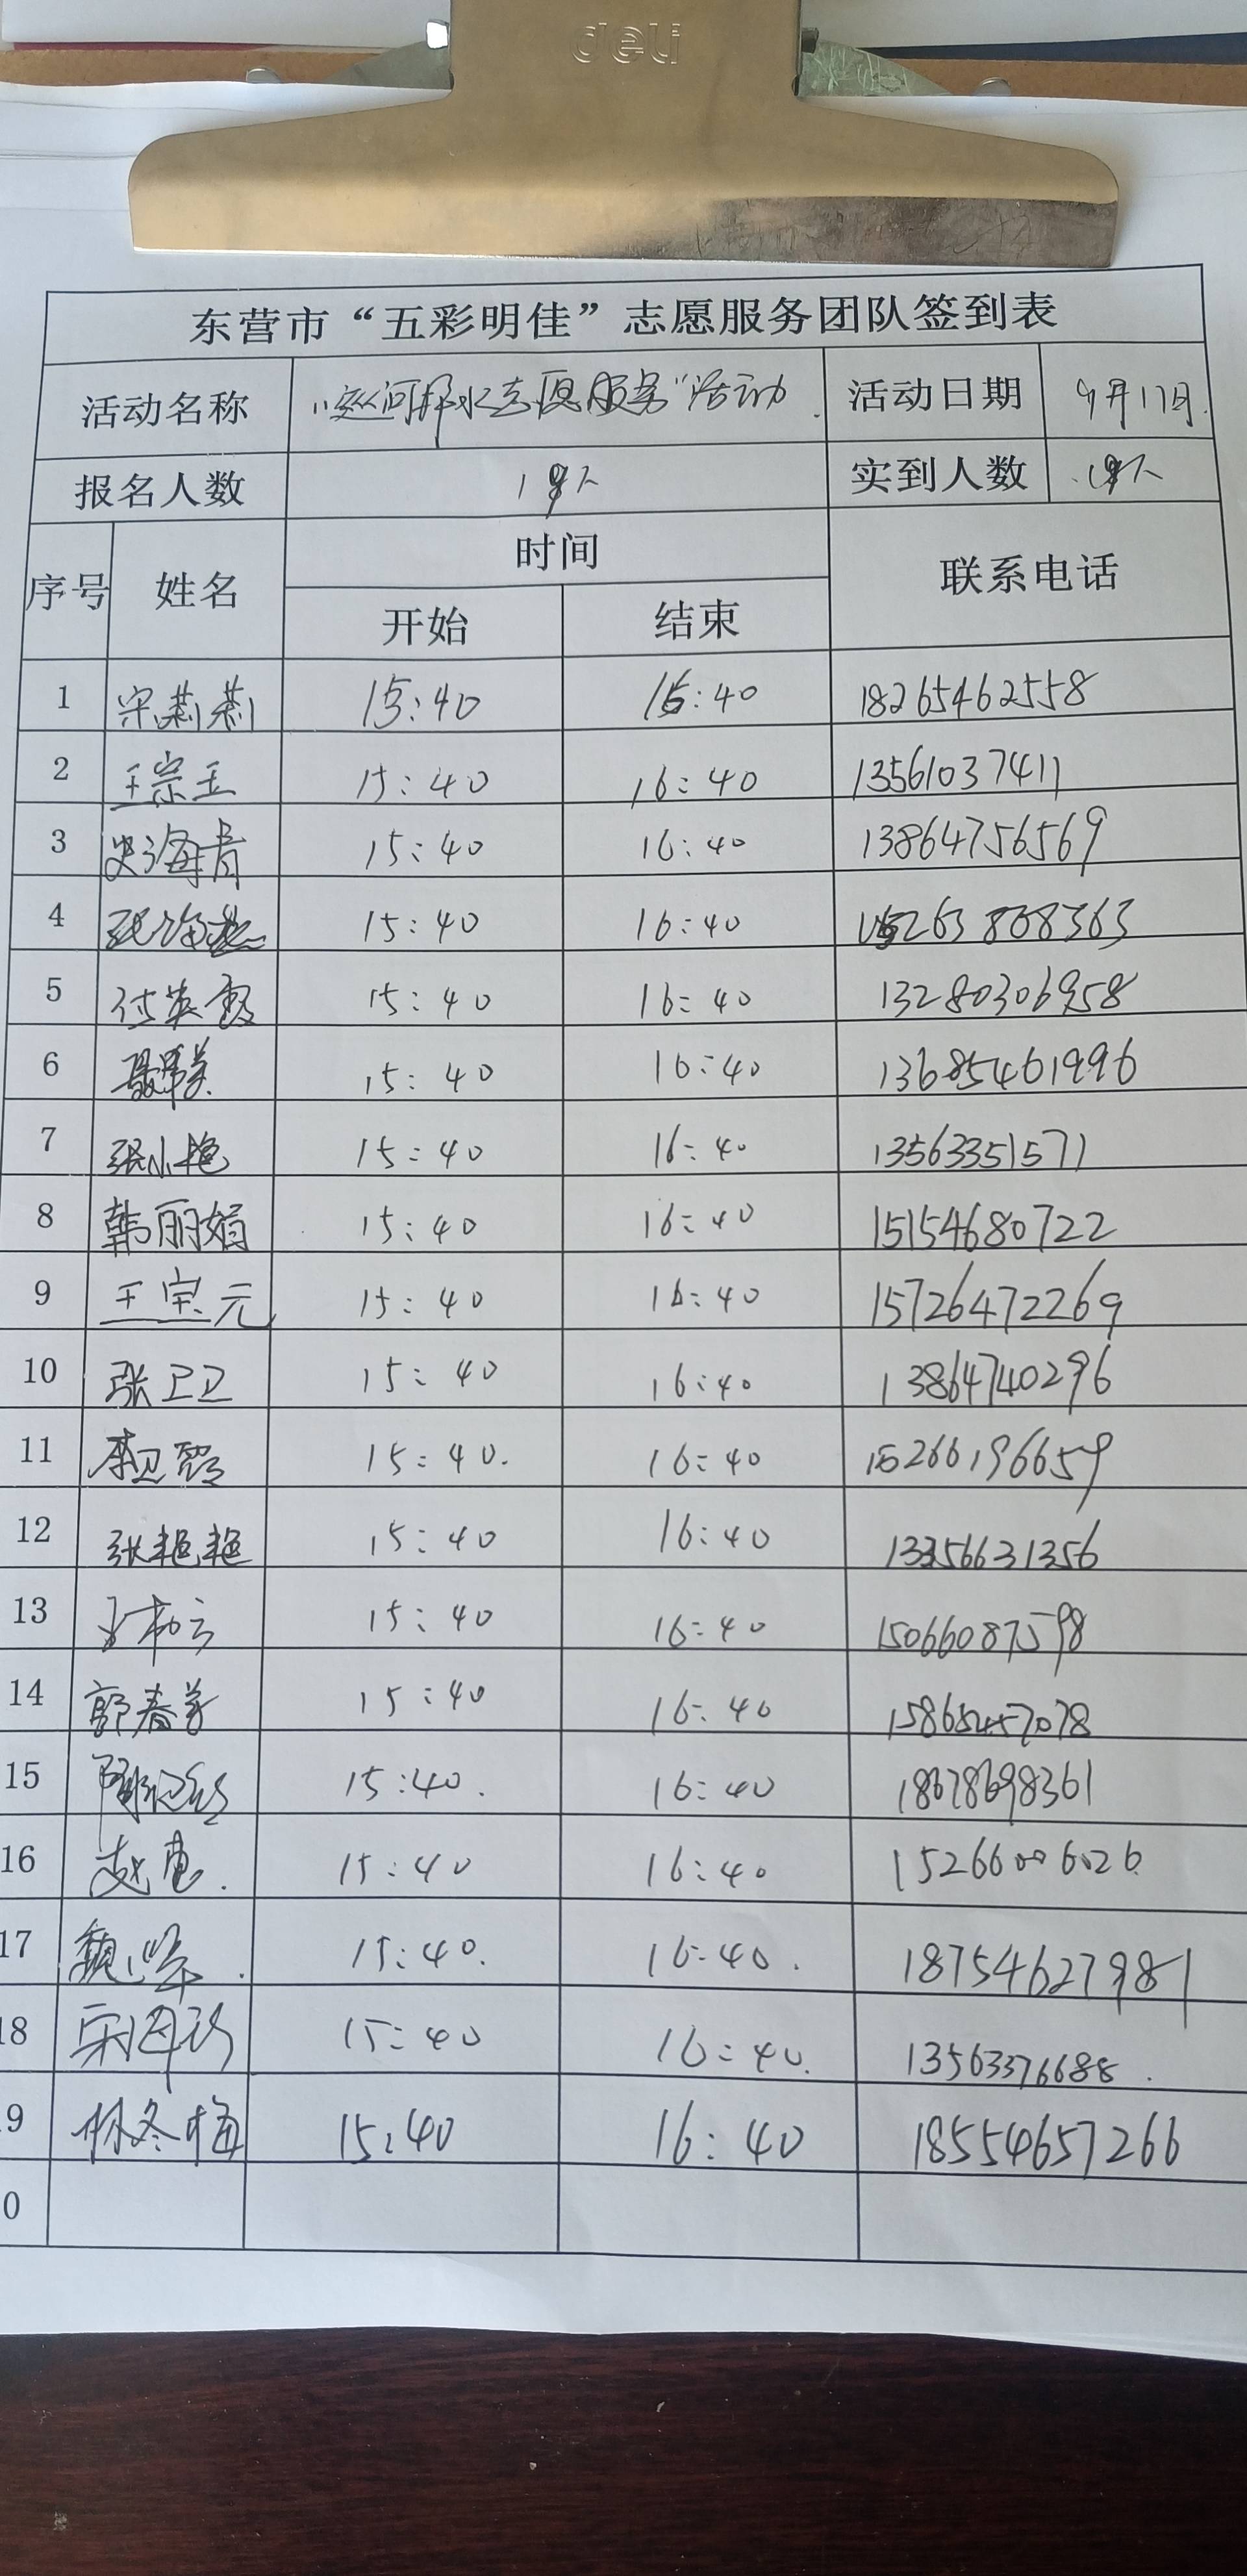 deli
东营市“五彩明佳”志愿服务团队签到表
活动名称 “巡河护水志愿服务”活动. 活动日期 9月17日.
报名人数 19人 实到人数 19人
序号 姓名 时间 联系电话
开始 结束
1 宋莉莉 15:40 16:40 18265462558
2 王宗玉 15:40 16:40 13561037411
3 史海青 15:40 16:40 13864756569
4 15:40 16:40
5 付英霞 15:40 16:40 13280306958
6 15:40 16:40 13685461996
7 张小艳 15:40 16:40 13563351571
8 韩丽娟 15:40 16:40 15154680722
9 王宝元 15:40 16:40 15726472269
10 张卫卫 15:40 16:40 13864740296
11 李卫霞 15:40. 16:40 15266196659
12 张艳艳 15:40 16:40
13 15:40 16:40 15066087598
14 郭春芳 15:40 16:40 15865457078
15 15:40. 16:40 18678698361
16 赵惠. 15:40 16:40 15266006026
17 15:40. 16:40. 18754627981
18 15:40 16:40. 13563376688.
9 林冬梅 15:40 16:40 18554657266
0